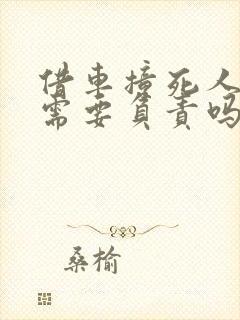 借車撞死人
需要負責嗎
桑榆